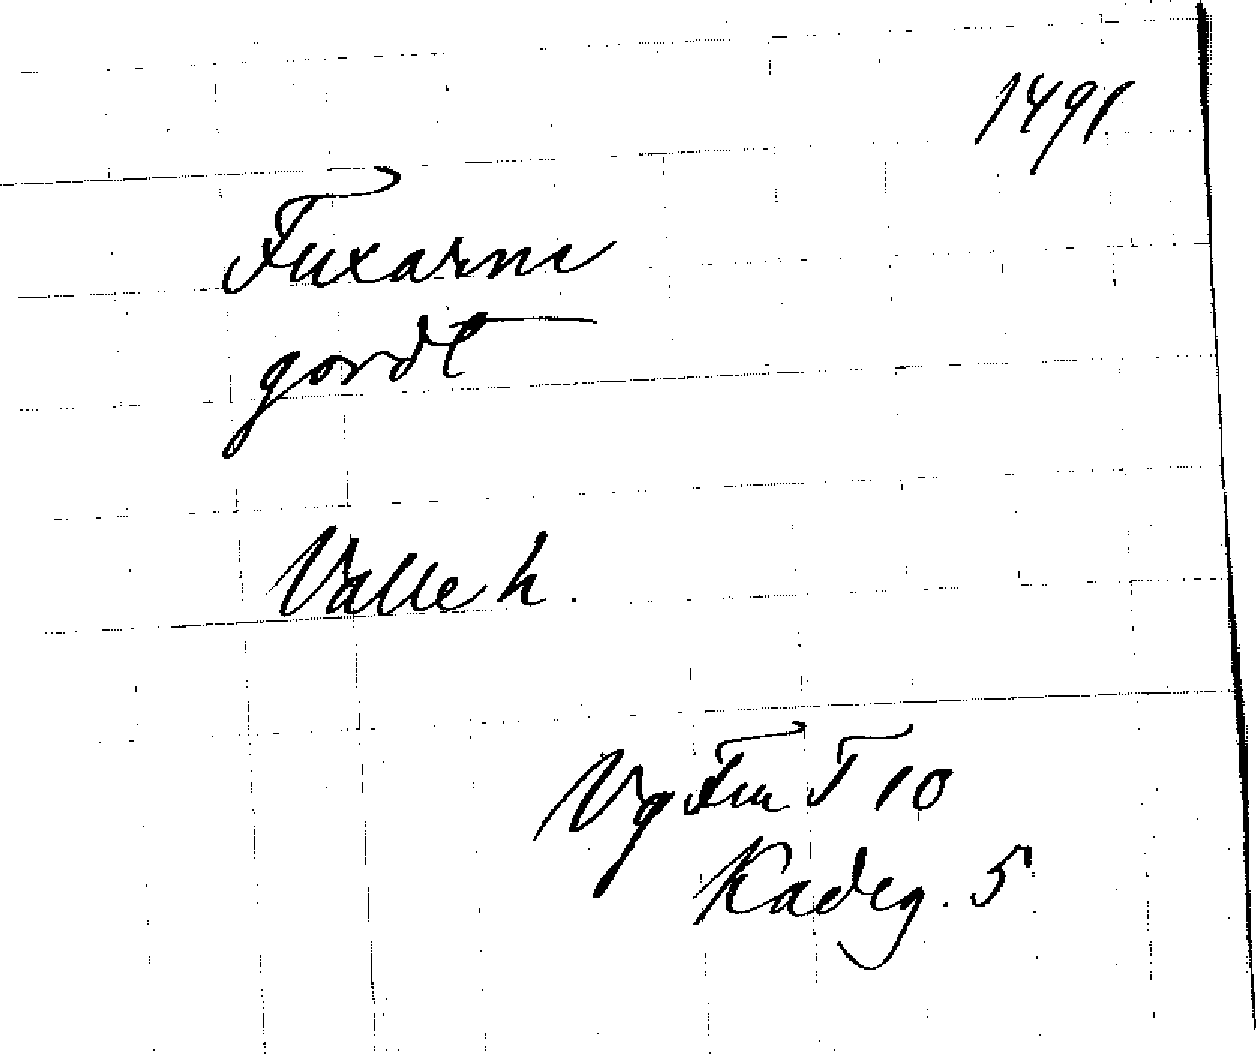 1491
Fuxarne
gordt
Valle h.
Vg Fru T 10
Kadeg. 5